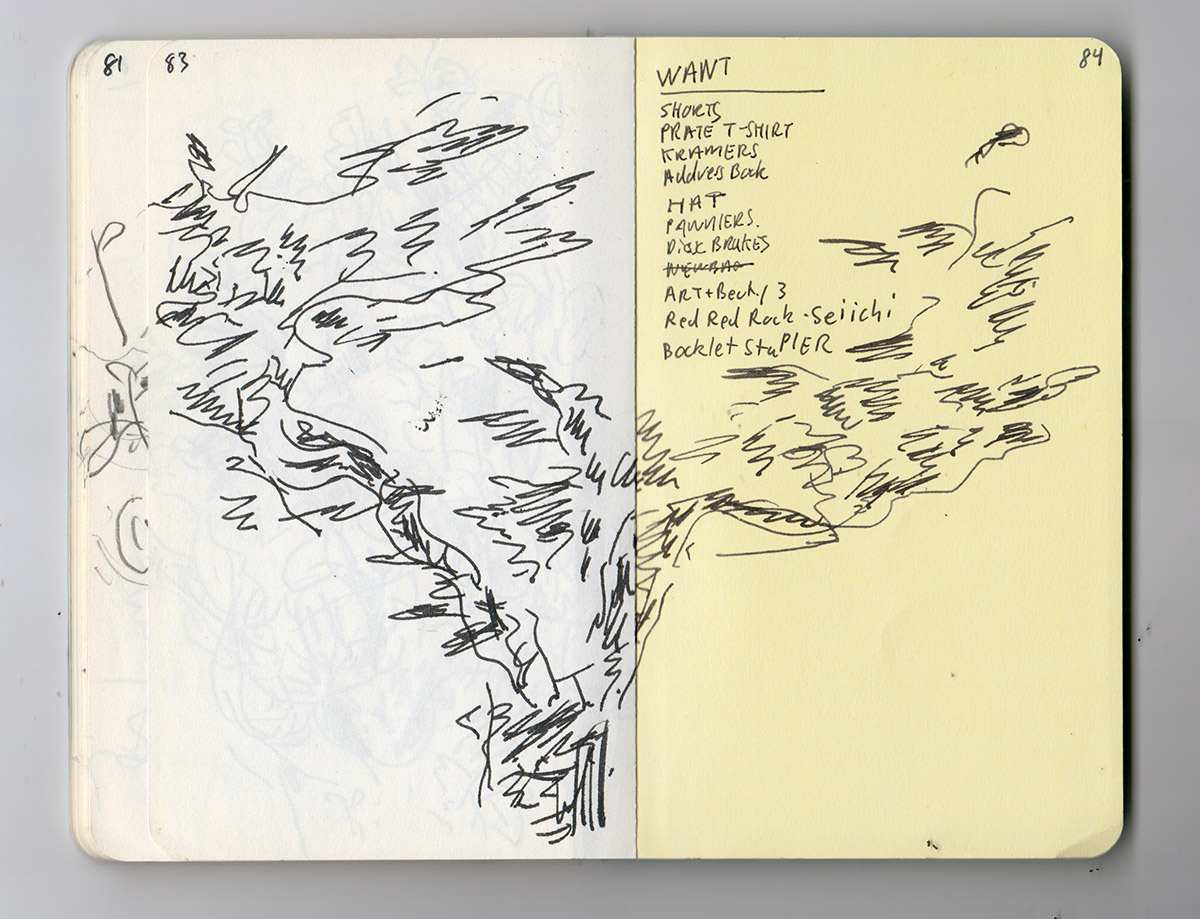 81
83
84
WANT
SHORTS
PRATE T-SHIRT
KRAMERS
Address Book
HAT
PANNIERS.
DISK BRAKES
ART+Bech/3
Red Red Rock - Seiichi
Booklet StaPlER